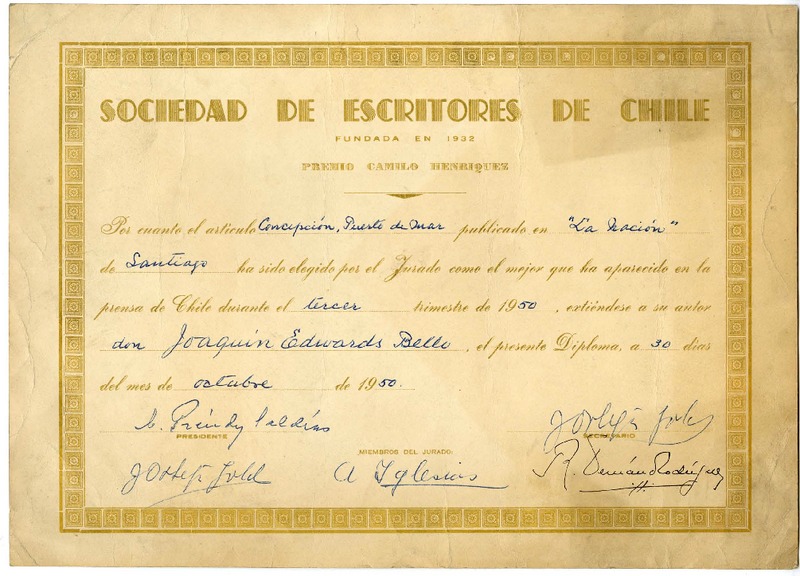 SOCIEDAD DE ESCRITORES DE CHILE
FUNDADA EN 1932
PREMIO CAMILO HENRIQUEZ
Por cuanto el artículo Concepción, Puerto de mar publicado en "La Nación"
de Santiago ha sido elegido por el Jurado como el mejor que ha aparecido en la
prensa de Chile durante el tercer trimestre de 1950, extiéndese a su autor
don Joaquín Edwards Bello, el presente Diploma, a 30 días
del mes de octubre de 1950.
PRESIDENTE
SECRETARIO
MIEMBROS DEL JURADO:
A Iglesias
R. Hernán Rodríguez